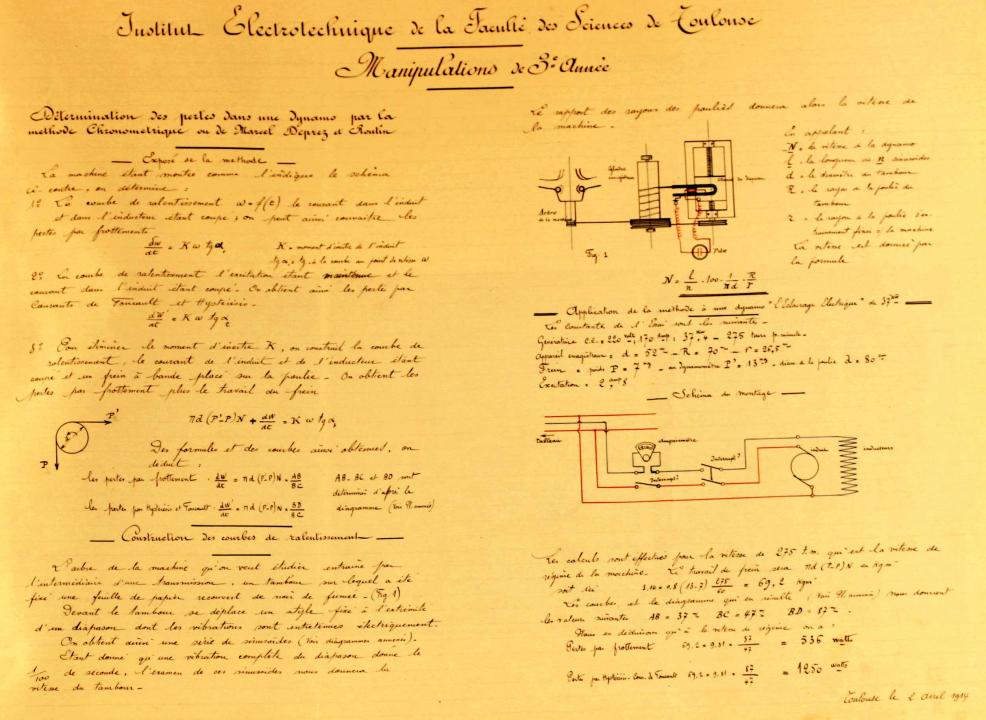 Institut Electrotechnique de la Faculté des Sciences de Toulouse
Manipulations de 3e Année
Détermination des pertes dans une dynamo par la
méthode Chronométrique ou de Marcel Déprez et Routin
Exposé de la méthode
La machine étant montée comme l'indique le schéma
ci contre, on détermine :
1º La courbe de ralentissement ω = f(t) le courant dans l'induit
et dans l'inducteur étant coupé ; on peut ainsi connaitre les
pertes par frottements
dw/dt = K ω tg α,
K = moment d'inertie de l'induit
tg α, = tg à la courbe au point de vitesse ω
2º La courbe de ralentissement l'excitation étant maintenue et le
courant dans l'induit étant coupé. On obtient ainsi les pertes par
Courants de Foucault et Hystérisis.
dw'/dt = K ω tg α
3º Pour éliminer le moment d'inertie K, on construit la courbe de
ralentissement, le courant de l'induit et de l'inducteur étant
coupé et un frein à bande placé sur la poulie. On obtient les
pertes par frottement plus le travail du frein
P'
P
πd (P'-P)N + dw/dt = K ω tg α,
Des formules et des courbes ainsi obtenues, on
déduit :
les pertes par frottement : dw/dt = πd (P'-P)N × AB/BC
AB - BC et BD sont
déterminés d'après le
diagramme (voir Pl. annexé)
les pertes par Hystérisis et Foucault : dw'/dt = πd (P'-P)N × BD/BC
Construction des courbes de ralentissement
L'arbre de la machine qu'on veut étudier entraine par
l'intermédiaire d'une transmission, un tambour sur lequel a été
fixé une feuille de papier recouvert de noir de fumée - (Fig 1)
Devant le tambour se déplace un style fixé à l'extrémité
d'un diapason dont les vibrations sont entretenues électriquement.
On obtient ainsi une série de sinusoïdes (Voir diagrammes annexés).
Etant donné qu'une vibration complète du diapason donne le
1/100 de seconde, l'examen de ces sinusoïdes nous donnera la
vitesse du tambour -
Le rapport des rayons des poulies donnera alors la vitesse de
la machine.
Cylindre
enregistreur
Arbre
de la machine
Pile
Fig. 1
En appelant :
N = la vitesse de la dynamo
l = la longueur de n sinusoïdes
d = le diamètre du tambour
R = le rayon de la poulie du
tambour
r = le rayon de la poulie
fixée à la machine
La vitesse est donnée par
la formule
N = l/n . 100 . 1/πd . R/r
Application de la méthode à une dynamo "L'Eclairage Electrique" de 37 KW
Les constantes de l'Essai sont les suivantes -
Génératrice c.c. = 220 volts, 170 amp ; 37,4 - 275 tours p. minute -
Appareil enregistreur : d = 52 - R = 70 - r = 26,5
Frein = poids P = 7 Kg - au dynamomètre P' = 13 Kg - diam de la poulie d = 80
Excitation = 2 amp 8
Schéma du montage
Tableau
Ampèremètre
Interrupt.r
Interrupt.r
induit
inducteurs
Les calculs sont effectués pour la vitesse de 275 t.m. qui est la vitesse de
régime de la machine. Le travail de frein sera πd (P'-P)N en Kgm
soit ici 3,14 × 0,8 (13-7) 275/60 = 69,2 Kgm
Les courbes, et le diagramme qui en résulte, (voir Pl annexé) nous donnent
les valeurs suivantes AB = 37 BC = 47 BD = 87
Nous en déduisons qu'à la vitesse de régime on a :
Pertes par frottement 69,2 × 9.81 × 37/47 = 536 watts
Pertes par Hystérisis - Cour. de Foucault 69,2 × 9.81 × 87/47 = 1250 watts
Toulouse le 2 avril 1914